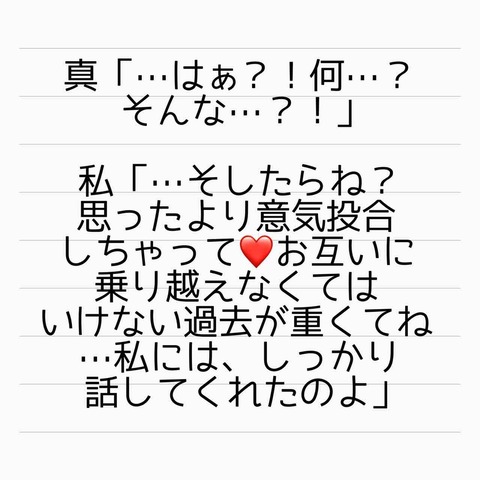 真「…はぁ？！何…？
そんな…？！」
私「…そしたらね？
思ったより意気投合
しちゃって❤️お互いに
乗り越えなくては
いけない過去が重くてね
…私には、しっかり
話してくれたのよ」